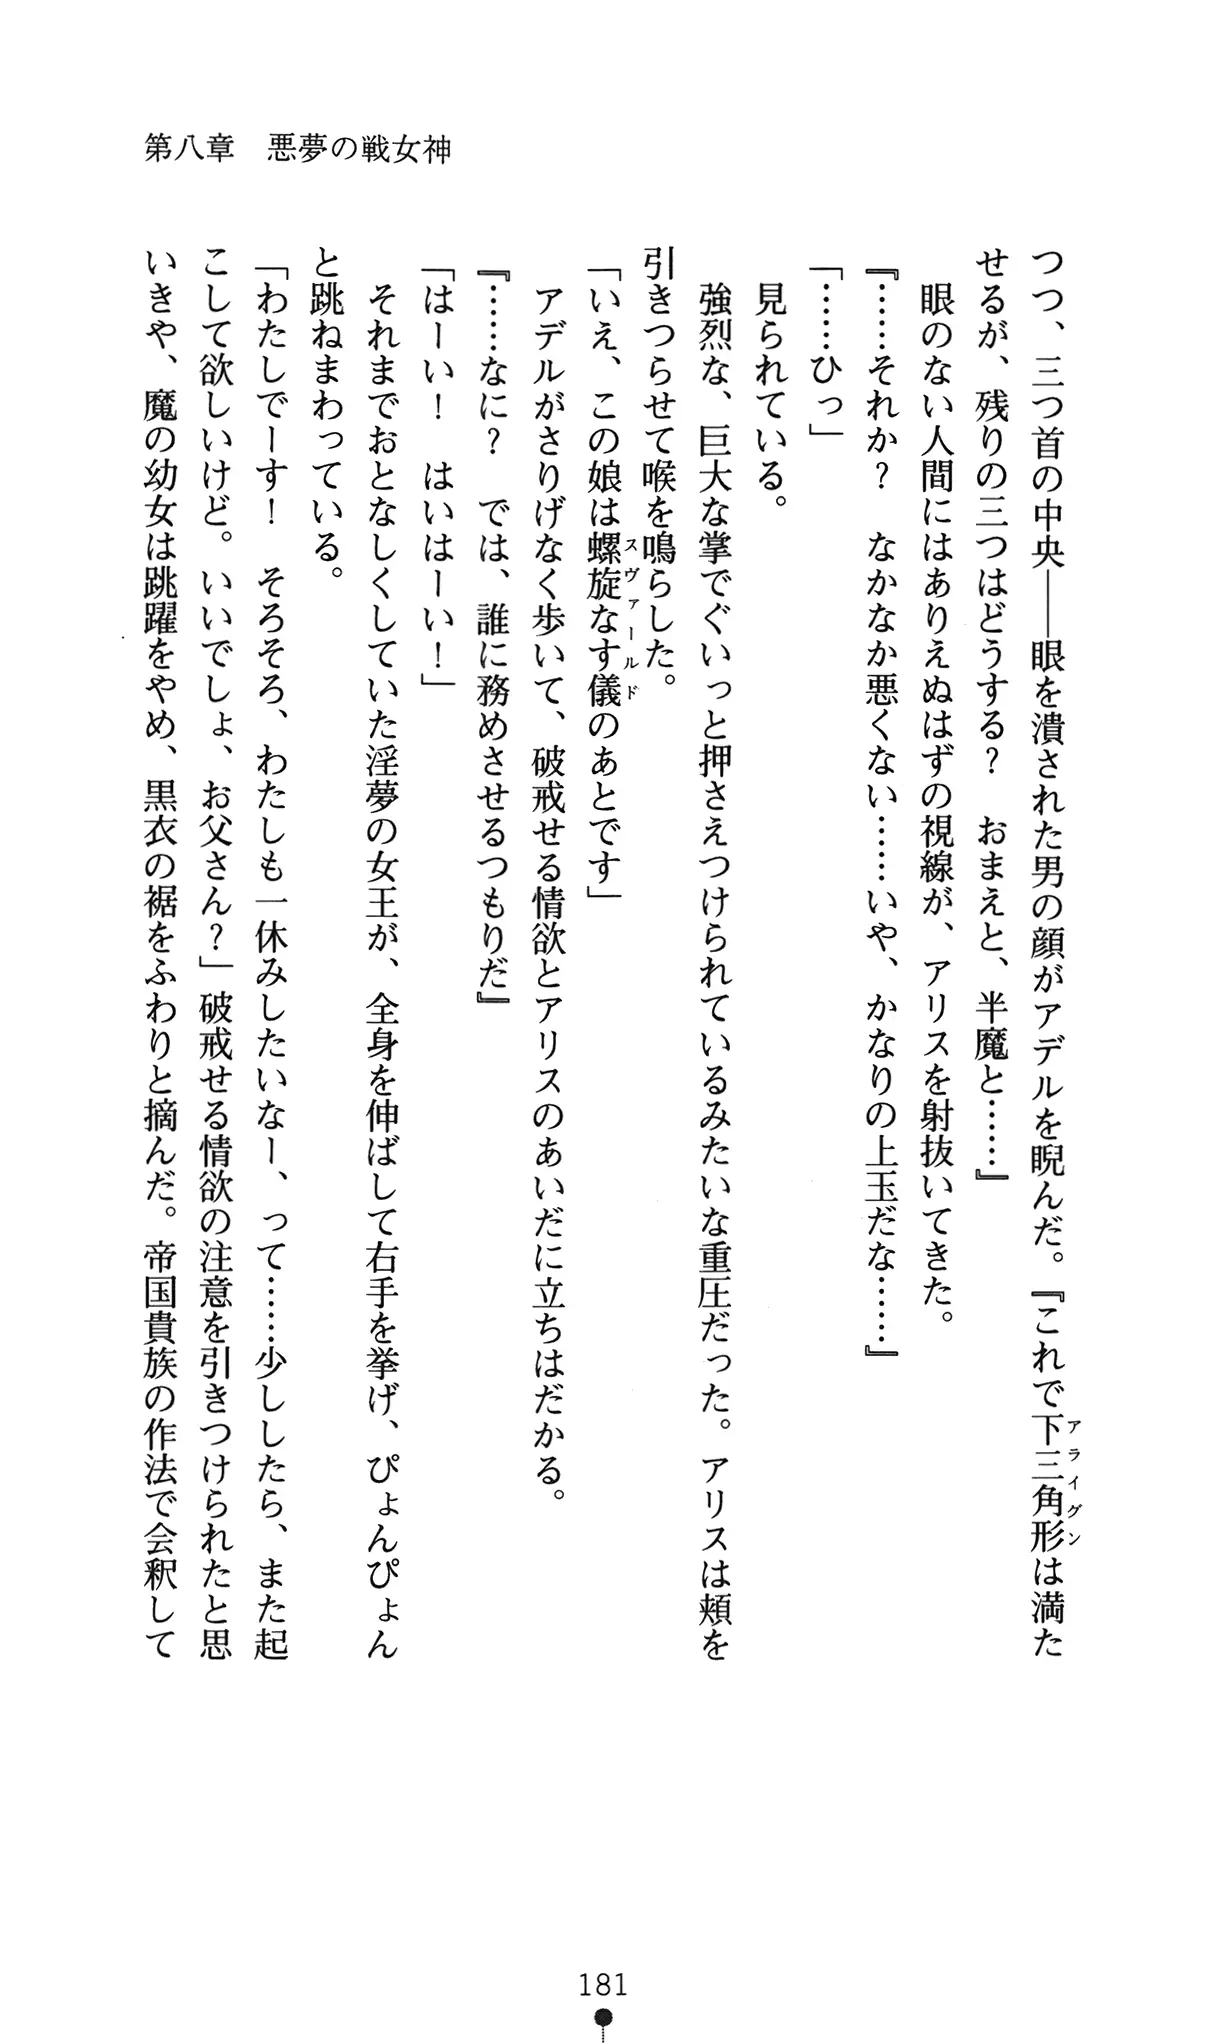 第八章　悪夢の戦女神
つつ、三つ首の中央――眼を潰された男の顔がアデルを睨んだ。『これで下三角形は満た
アライグン
せるが、残りの三つはどうする？　おまえと、半魔と……』
　眼のない人間にはありえぬはずの視線が、アリスを射抜いてきた。
『……それか？　なかなか悪くない……いや、かなりの上玉だな……』
「……ひっ」
　見られている。
　強烈な、巨大な掌でぐいっと押さえつけられているみたいな重圧だった。アリスは頬を
引きつらせて喉を鳴らした。
「いえ、この娘は螺旋なす儀のあとです」
スヴァールド
　アデルがさりげなく歩いて、破戒せる情欲とアリスのあいだに立ちはだかる。
『……なに？　では、誰に務めさせるつもりだ』
「はーい！　はいはーい！」
　それまでおとなしくしていた淫夢の女王が、全身を伸ばして右手を挙げ、ぴょんぴょん
と跳ねまわっている。
「わたしでーす！　そろそろ、わたしも一休みしたいなー、って……少ししたら、また起
こして欲しいけど。いいでしょ、お父さん？」破戒せる情欲の注意を引きつけられたと思
いきや、魔の幼女は跳躍をやめ、黒衣の裾をふわりと摘んだ。帝国貴族の作法で会釈して
181